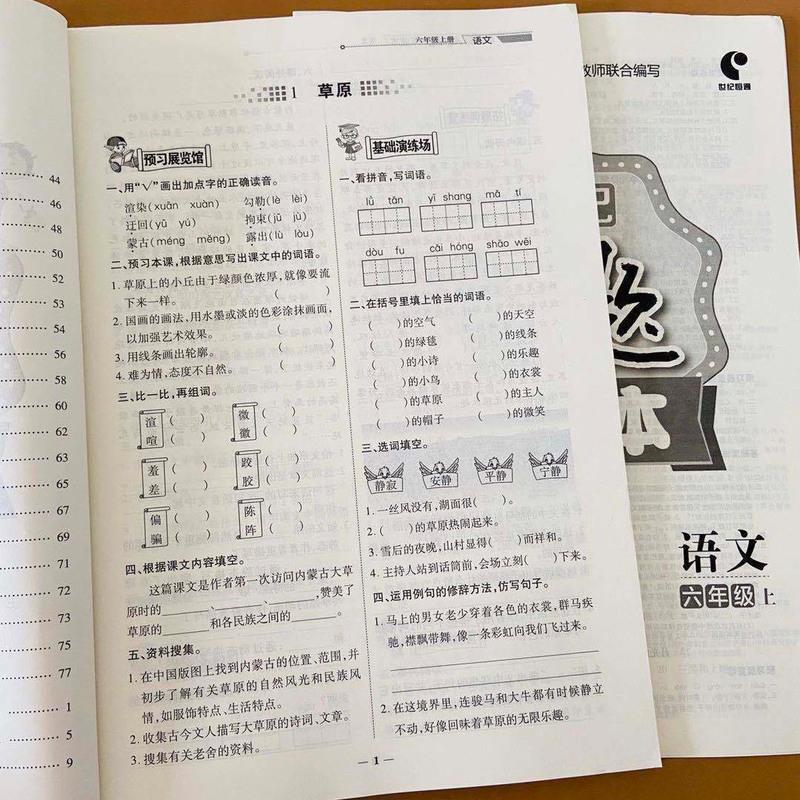 44
46
48
50
52
54
56
58
60
62
64
63
65
67
69
71
73
75
77
1
5
9
六年级上册 语文
1 草原
预习展览馆
一、用“√”画出加点字的正确读音。
渲染(xuān xuàn) 勾勒(lè lēi)
迂回(yū yú) 拘束(jū jù)
蒙古(méng měng) 露出(lù lòu)
二、预习本课,根据意思写出课文中的词语。
1. 草原上的小丘由于绿颜色浓厚,就像要流
下来一样。 ( )
2. 国画的画法,用水墨或淡的色彩涂抹画面,
以加强艺术效果。 ( )
3. 用线条画出轮廓。 ( )
4. 难为情,态度不自然。 ( )
三、比一比,再组词。
渲( ) 微( )
喧( ) 徽( )
羞( ) 跤( )
差( ) 胶( )
偏( ) 陈( )
骗( ) 阵( )
四、根据课文内容填空。
这篇课文是作者第一次访问内蒙古大草
原时的________、________、________,赞美了
草原的________和各民族之间的________。
五、资料搜集。
1. 在中国版图上找到内蒙古的位置、范围,并
初步了解有关草原的自然风光和民族风
情,如服饰特点、生活特点。
2. 收集古今文人描写大草原的诗词、文章。
3. 搜集有关老舍的资料。
基础演练场
一、看拼音,写词语。
lǜ tǎn yī shang mǎ tí
dòu fu cǎi hóng shào wēi
二、在括号里填上恰当的词语。
( )的空气 ( )的天空
( )的绿毯 ( )的线条
( )的小诗 ( )的乐趣
( )的小鸟 ( )的衣裳
( )的草原 ( )的主人
( )的帽子 ( )的微笑
三、选词填空。
静寂 安静 平静 宁静
1. 一丝风没有,湖面很( )。
2. ( )的草原热闹起来。
3. 雪后的夜晚,山村显得( )而祥和。
4. 主持人站到话筒前,会场立刻( )下来。
四、运用例句的修辞方法,仿写句子。
1. 马上的男女老少穿着各色的衣裳,群马疾
驰,襟飘带舞,像一条彩虹向我们飞过来。
2. 在这境界里,连骏马和大牛都有时候静立
不动,好像回味着草原的无限乐趣。
— 1 —
教师联合编写
世纪恒通
题
本
语文
六年级 上